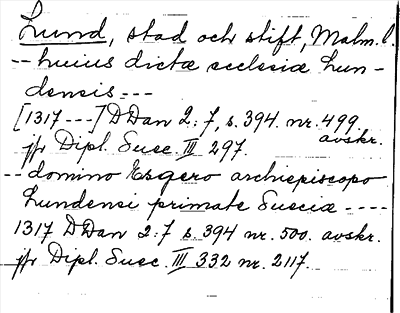 Lund, stad och stift, Malm. l.
-- huius dictæ ecclesiæ Lun-
densis ---
[1317 ---] DDan 2:7, s. 394. nr. 499
avskr.
jfr Dipl. Suec. III 297.
-- domino Esgero archiepiscopo
Lundensi primate Suecia ----
1317 DDan 2:7 s. 394 nr. 500. avskr.
jfr Dipl. Suec. III 332 nr. 2117.